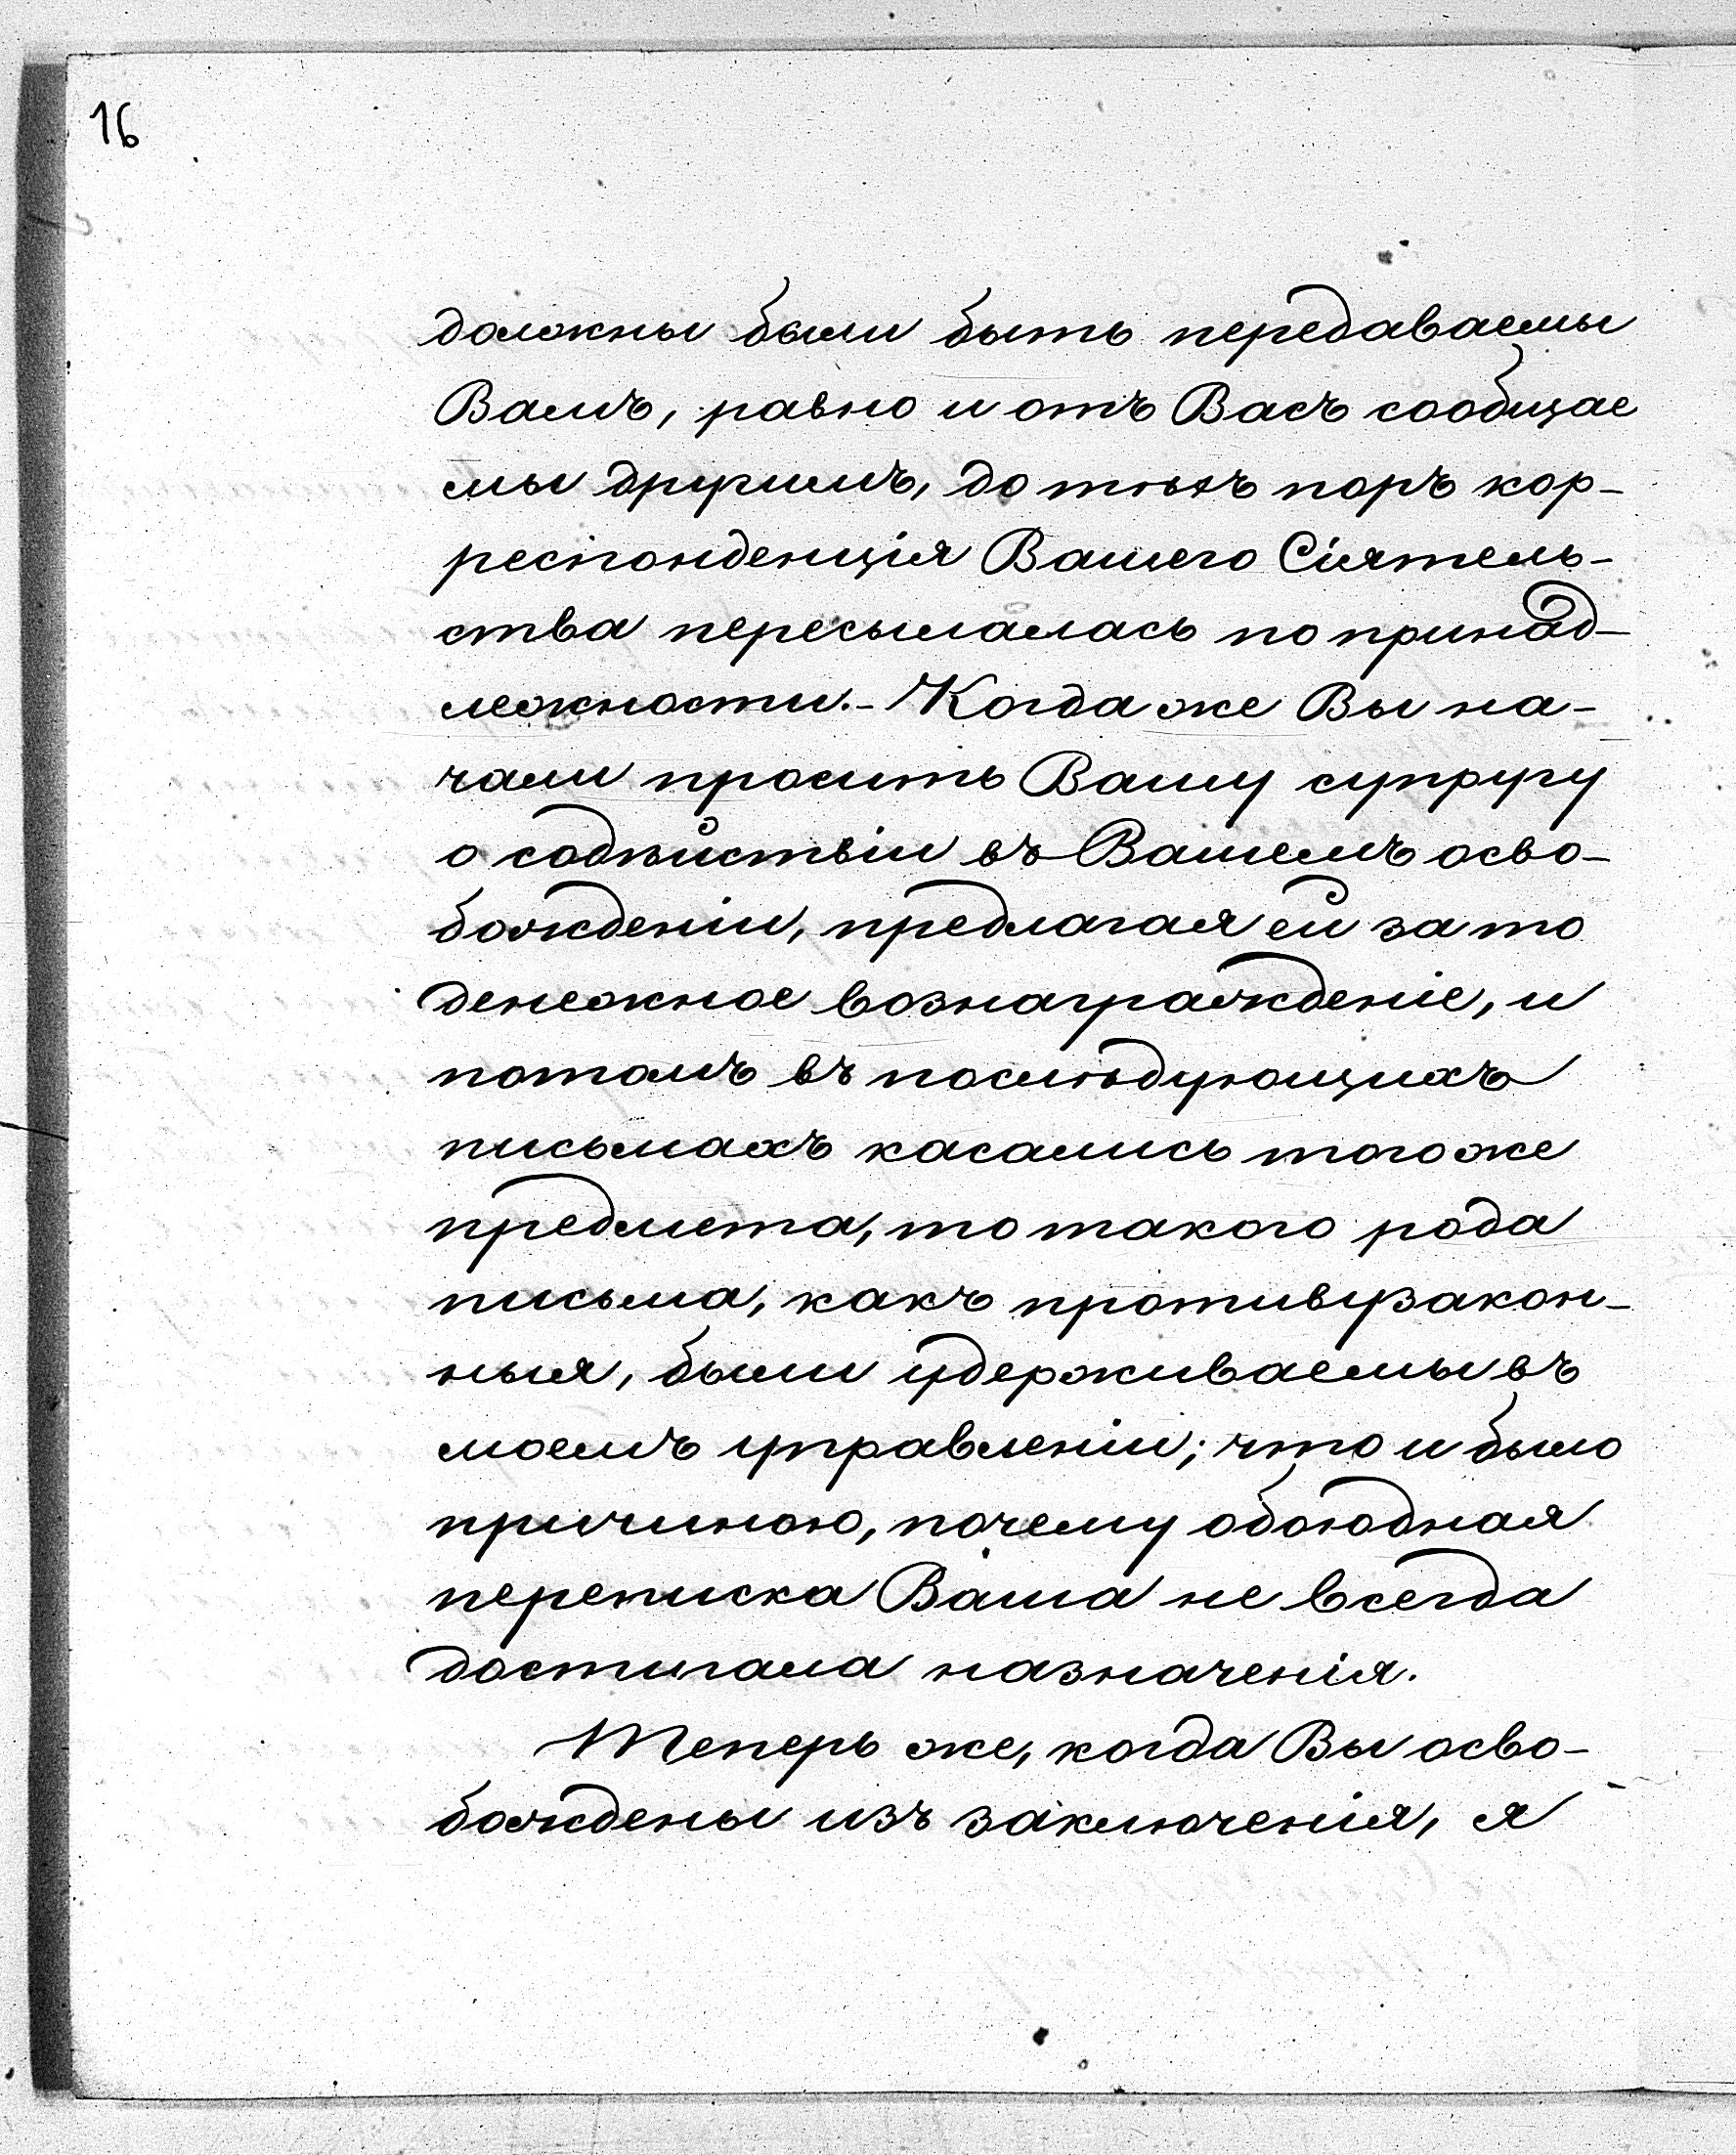 16
должны были быть передаваемы
Вамъ, равно и отъ Васъ сообщае
мы другимъ, до тѣхъ поръ кор-
респонденція Вашего Сіятель-
ства пересылалась по принад-
лежности.- Когда же Вы на-
чали просить Вашу супругу
о содѣйствіи въ Вашемъ осво-
божденіи, предлагая ей за то
денежное вознагражденіе, и
потомъ въ послѣдующихъ
письмахъ касались того же
предмета, то такого рода
письма, какъ противузакон-
ныя, были удерживаемы въ
моемъ управленіи; что и было
причиною, почему обоюдная
переписка Ваша не всегда
достигала назначенія.
Теперь же, когда Вы осво-
бождены изъ заключенія, я